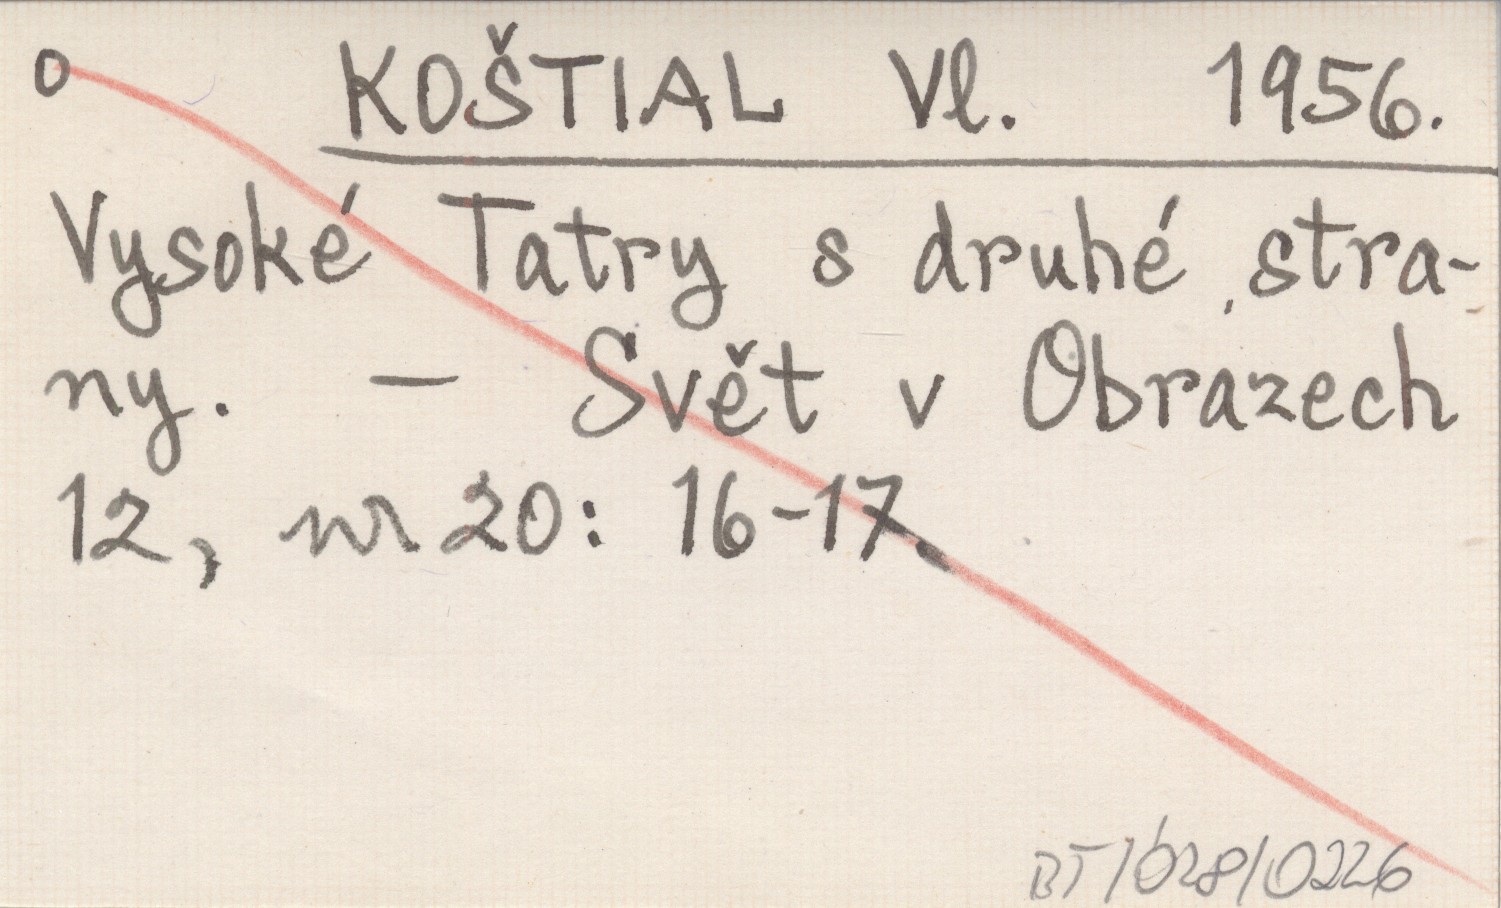 o KOŠTIAL Vl. 1956.
Vysoké Tatry s druhé stra-
ny. — Svět v Obrazech
12, nr 20: 16-17.
BT/028/0226